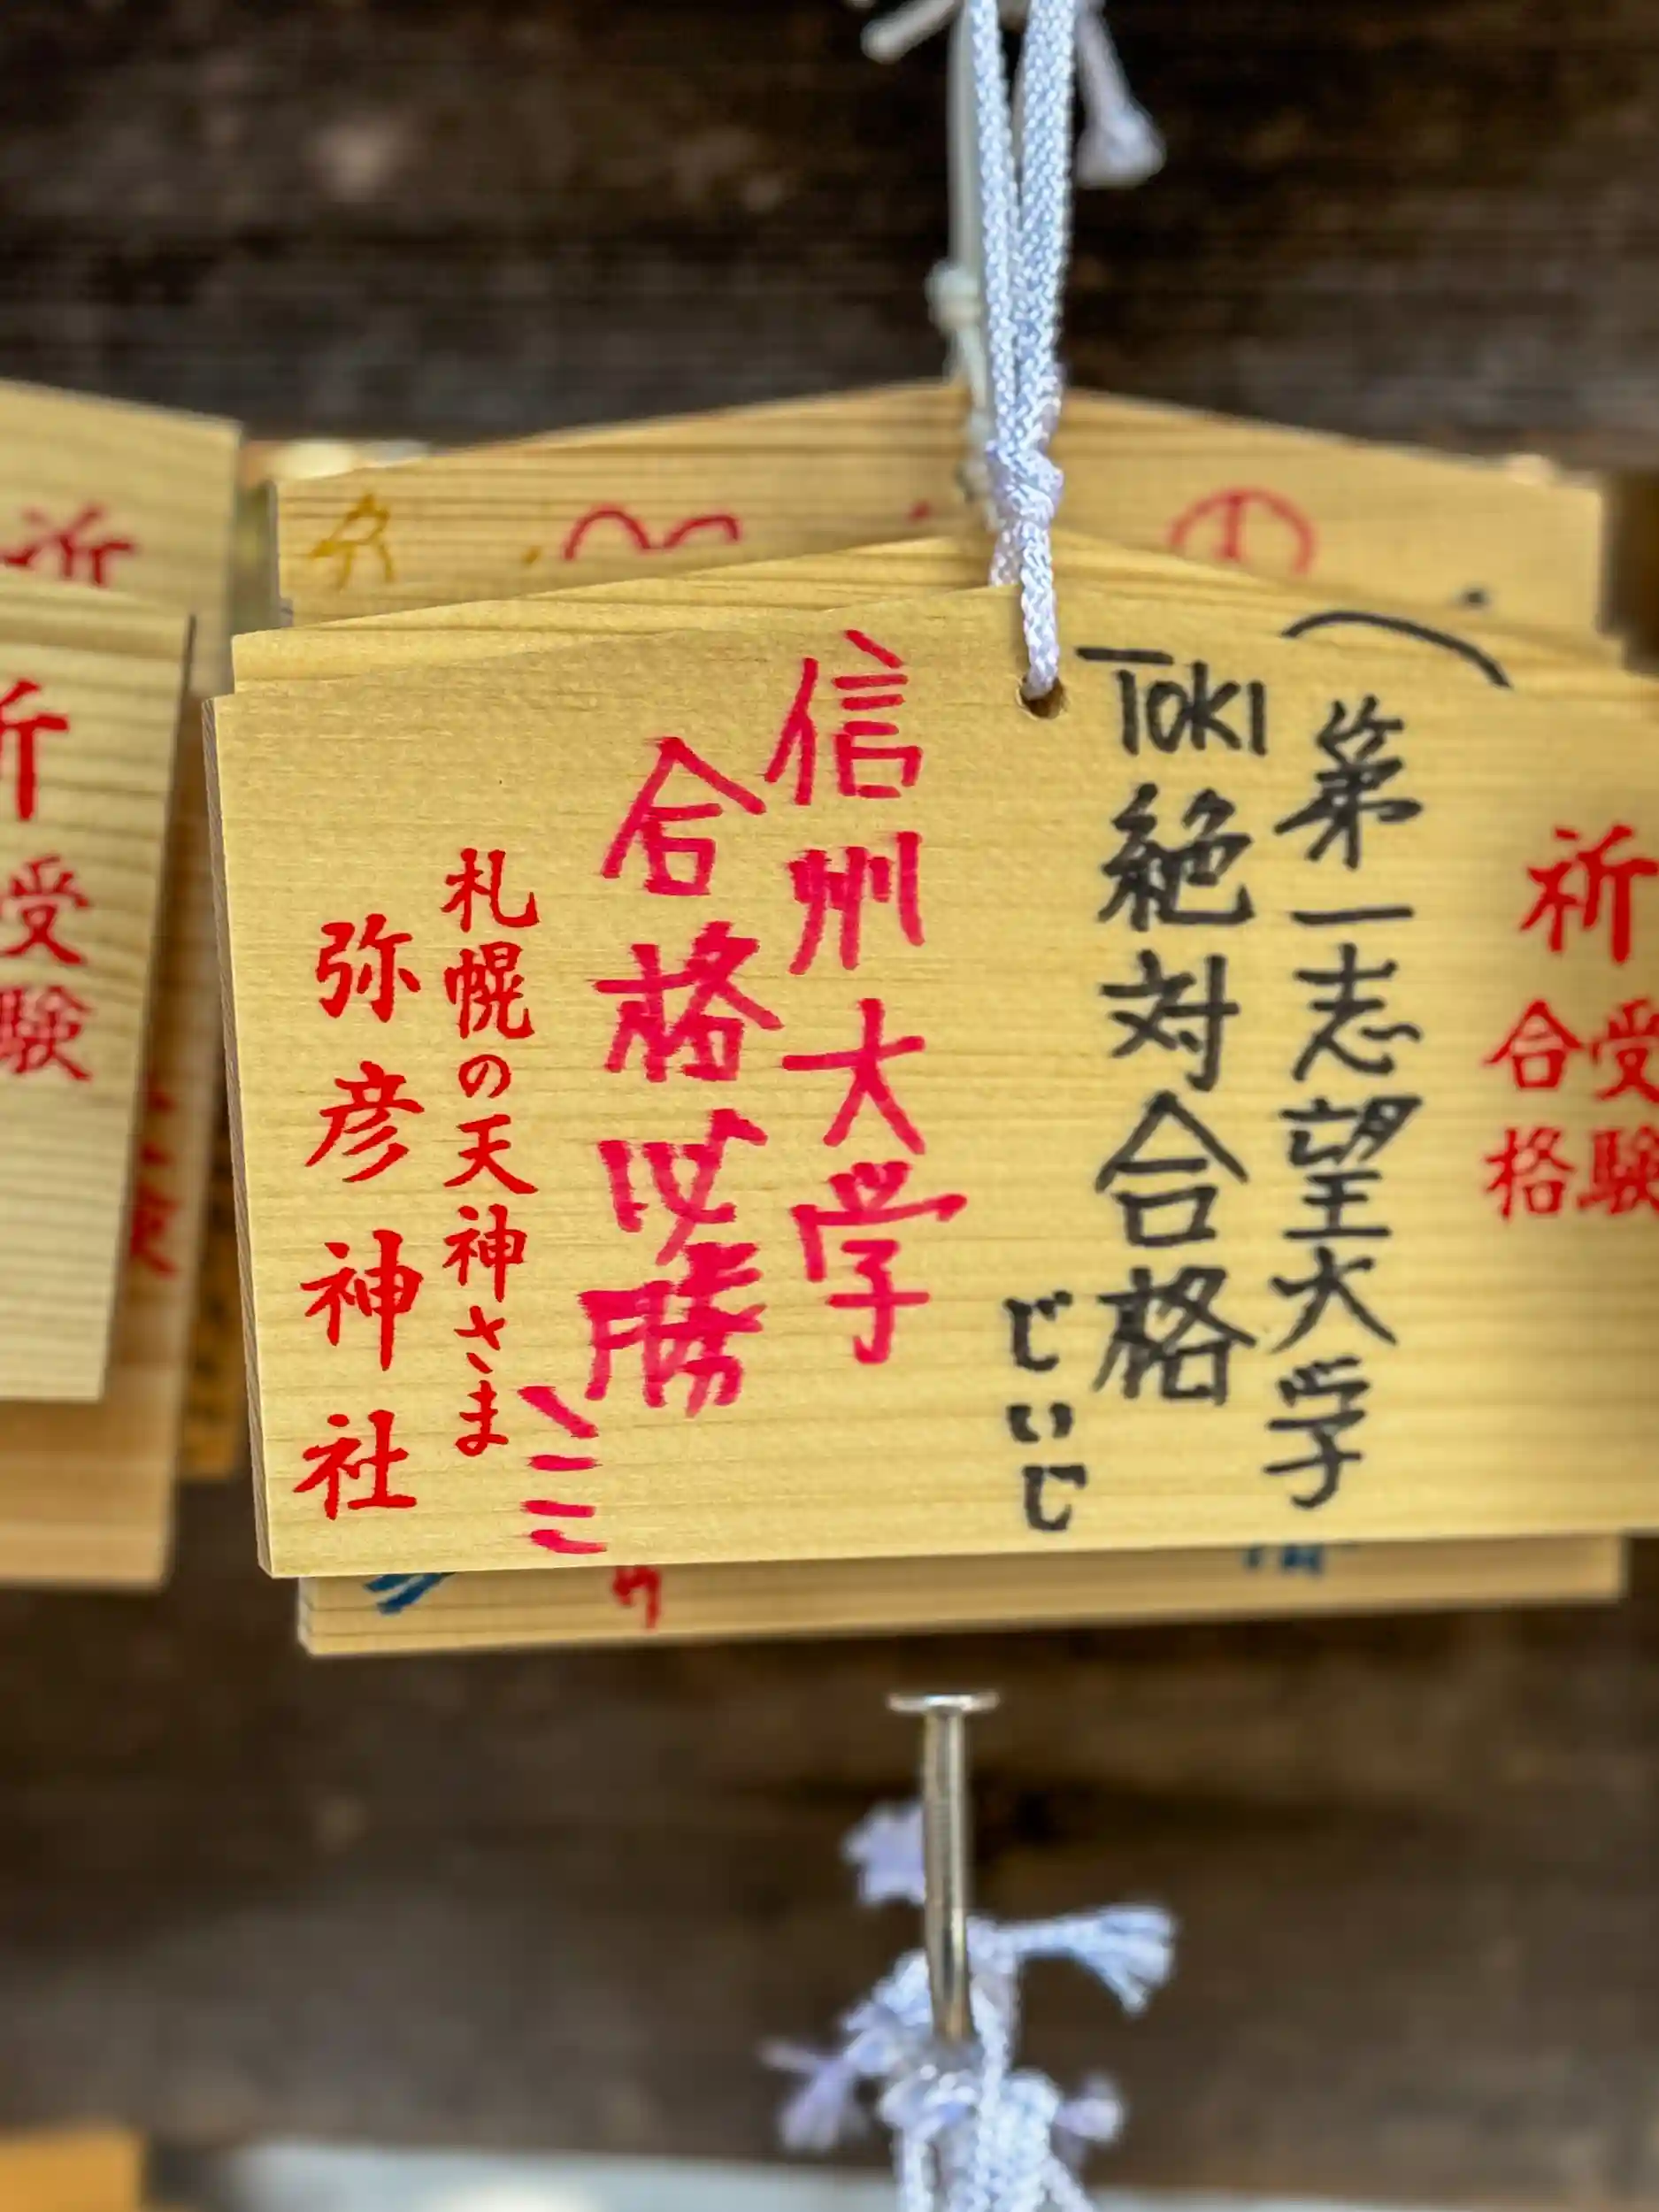 祈
受験
合格
第一志望大学
TOKI 絶対合格
じいじ
信州大学
合格必勝
札幌の天神さま
弥彦神社
祈
祈
受験